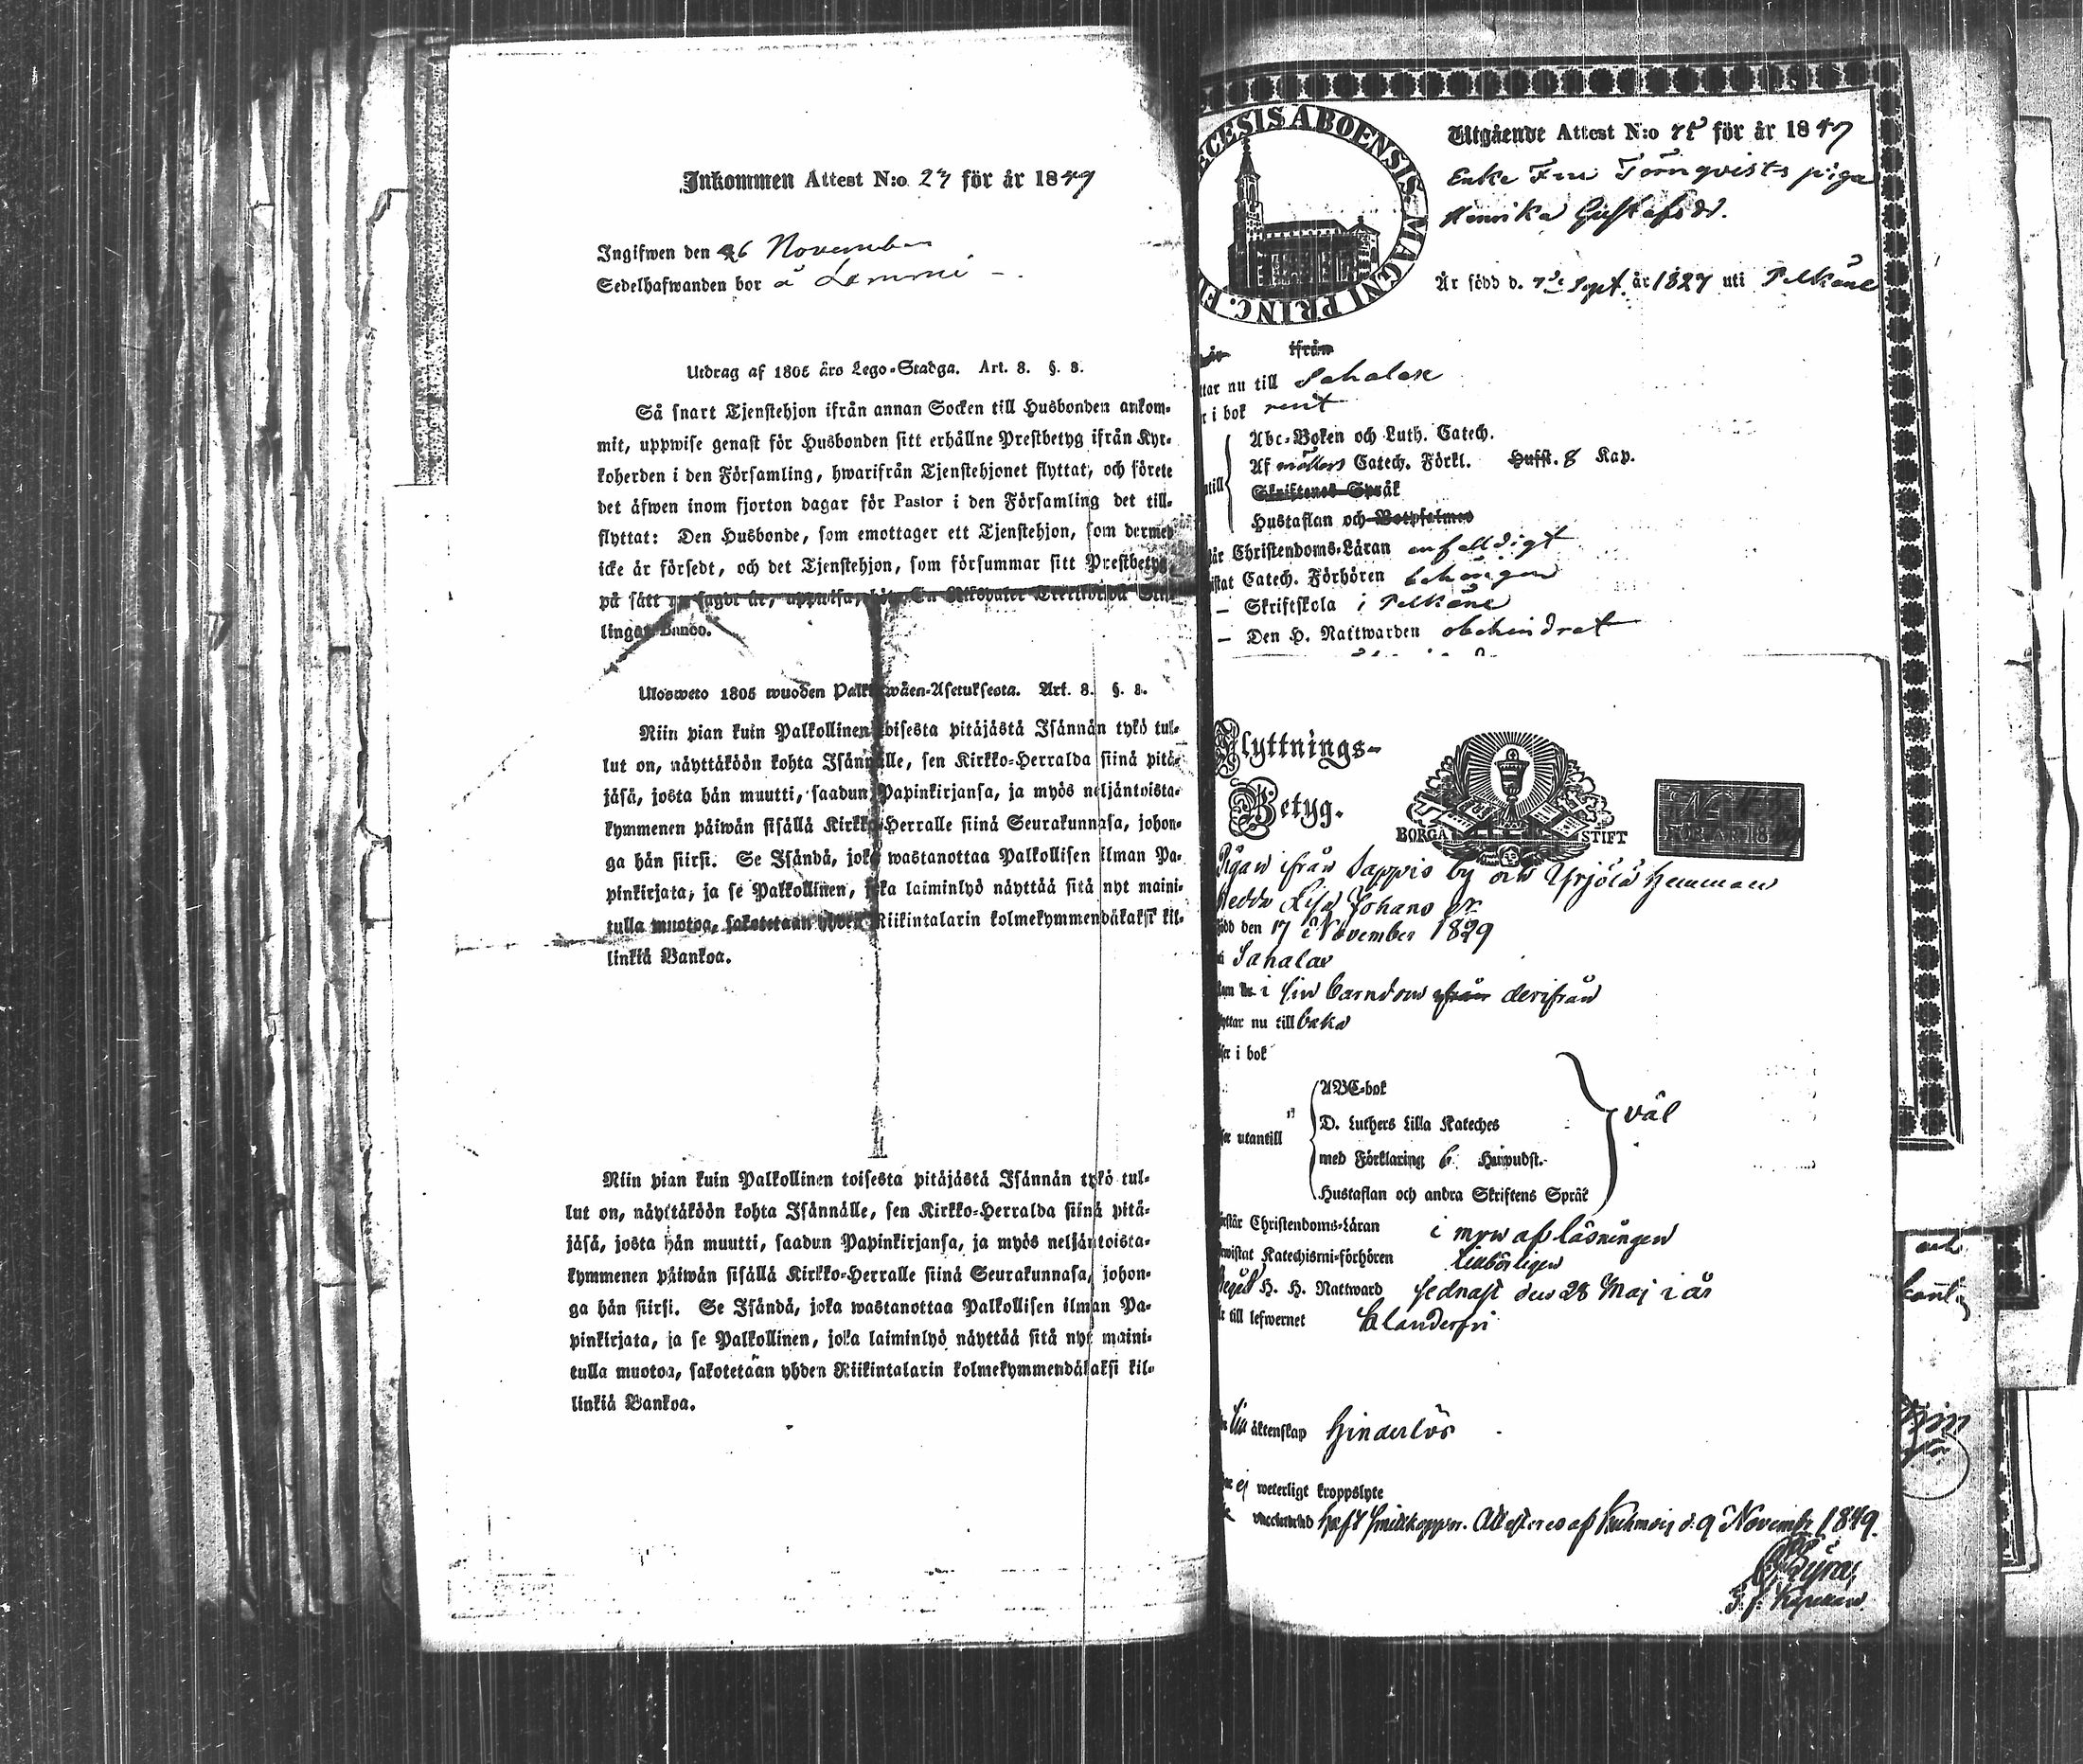 Inkommen Attest N:o 27 för år 1849
Ingifwen den 26 November
Sedelhafwanden bor å Lemmi
Utdrag af 1805 års Lego-Stadga. Art. 8. §. 8.
Så snart Tjenstehjon ifrån annan Socken till Husbonden ankom-
mit, uppwise genast för Husbonden sitt erhållne Prestbetyg ifrån Kyr-
koherden i den Församling, hwarifrån Tjenstehjonet flyttat, och förete
det äfwen inom fjorton dagar för Pastor i den Församling det till-
flyttat: Den Husbonde, som emottager ett Tjenstehjon, som dermed
icke är försedt, och det Tjenstehjon, som försummar sitt Prestbetyg
på sätt nu sagdt är, uppwisa, böte En Riksdaler Trettiotwå Skil-
lingar Banco.
Ulosweto 1805 wuoden Palkkawäen-Asetuksesta. Art. 8. §. 8.
Niin pian kuin Palkollinen toisesta pitäjästä Isännän tykö tul-
lut on, näyttäköön kohta Isännälle, sen Kirkko-Herralda siinä pitä-
jäsä, josta hän muutti, saadun Papinkirjansa, ja myös neljäntoista-
kymmenen päiwän sisällä Kirkko-Herralle siinä Seurakunnasa, johon-
ga hän siirsi. Se Isändä, joka wastanottaa Palkollisen ilman Pa-
pinkirjata, ja se Palkollinen, joka laiminlyö näyttää sitä nyt maini-
tulla muotoa, sakotetaan yhden Riikintalarin kolmekymmendäkaksi kil-
linkiä Bankoa.
Niin pian kuin Palkollinen toisesta pitäjästä Isännän tykö tul-
lut on, näyttäköön kohta Isännälle, sen Kirkko-Herralda siinä pitä-
jäsä, josta hän muutti, saadun Papinkirjansa, ja myös neljäntoista-
kymmenen päiwän sisällä Kirkko-Herralle siinä Seurakunnasa, johon-
ga hän siirsi. Se Isändä, joka wastanottaa Palkollisen ilman Pa-
pinkirjata, ja se Palkollinen, joka laiminlyö näyttää sitä nyt maini-
tulla muotoa, sakotetaan yhden Riikintalarin kolmekymmendäkaksi kil-
linkiä Bankoa.
ECESIS ABOENSIS MAGNI PRINC. FI
Utgående Attest N:o för år 1849
Enke Fru Törnqvists piga
Henrika Gustafsdr.
Är född d. 7de Sept. år 1827 uti Pelkäne
ifrån
ttar nu till Sahalax
r i bok rent
Abc-Boken och Luth. Catech.
Af Möllers Catech. Förkl. Hufst. 8 Kap.
ntill
Skriftenes Språk
Hustaflan och Botpsalmer
tår Christendoms-Läran enfaldigt
istat Catech. Förhören behörigen
– Skriftskola i Pelkäne
– Den H. Nattwarden obehindrat
Flyttnings-
Betyg.
BORGÅ STIFT
N:
FÖR ÅR 18
Pigan ifrån Sappis by och Yrjölä hemman
Hedda Lisa Johans dr
född den 17 November 1829
i Sahalax
kom i sin barndom ifrån derifrån
flyttar nu tillbaka
ser i bok
ABC-bok
D. Luthers Lilla Kateches
utantill
med Förklaring 6 Huwudst.
Hustaflan och andra Skriftens Språk
väl
rstår Christendoms-Läran i mon af läsningen
ewistat Katechismi-förhören tillbörligen
Begått H. H. Nattward sednast den 28 Maj i år
till lefwernet Klanderfri
till äktenskap Hinderlös
ej weterligt kroppslyte
vaccinerad haft smittkoppor. Attesteras af Kuhmois d. 9 November 1849.